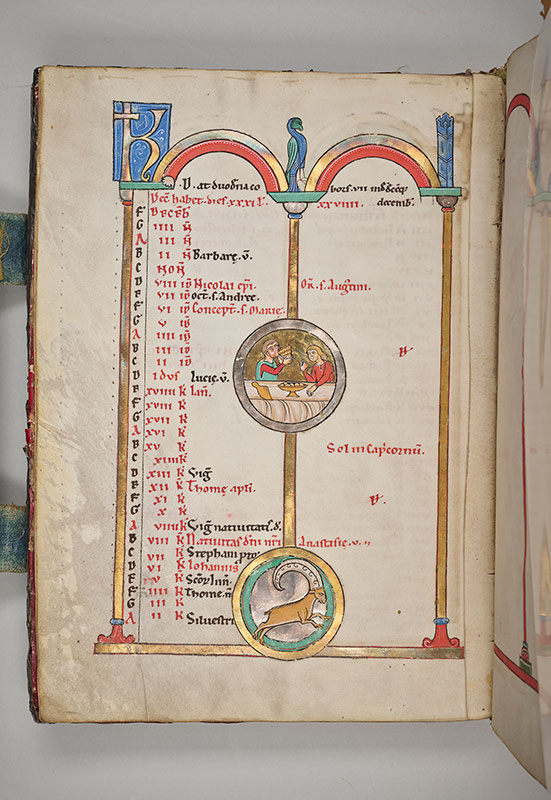 K
D. at duodena co hors. vii
Dec̄ habet. dies. xxxi. l̄. xxviiii. decemb̄.
F DECEB̄
G iiii N̄
A iii N̄
B ii N̄ Barbarę. v̄.
C NON̄
D viii id̄ Nicolai ep̄i. Oct̄. s. Augustini.
E vii id̄ oct̄. s. Andreę.
F vi id̄ Concept̄. s. Marię.
G v id̄
A iiii id̄
B iii id̄
C ii id̄
D idus Lucię. v̄.
E xviiii k Ian̄.
F xviii k
G xvii k
A xvi k
B xv k Sol in Cap̄cornū.
C xiiii k
D xiii k Vig̅
E xii k Thomę ap̄li.
F xi k
G x k
A viiii k Vig̅ nativitatis. d̄.
B viii k Nativitas dn̄i nr̄i Anastasię. v.
C vii k Stephani pro.
D vi k Iohannis
E v k Sc̄or Inn̄.
F iiii k Thomę
G iii k
A ii k Silvestri